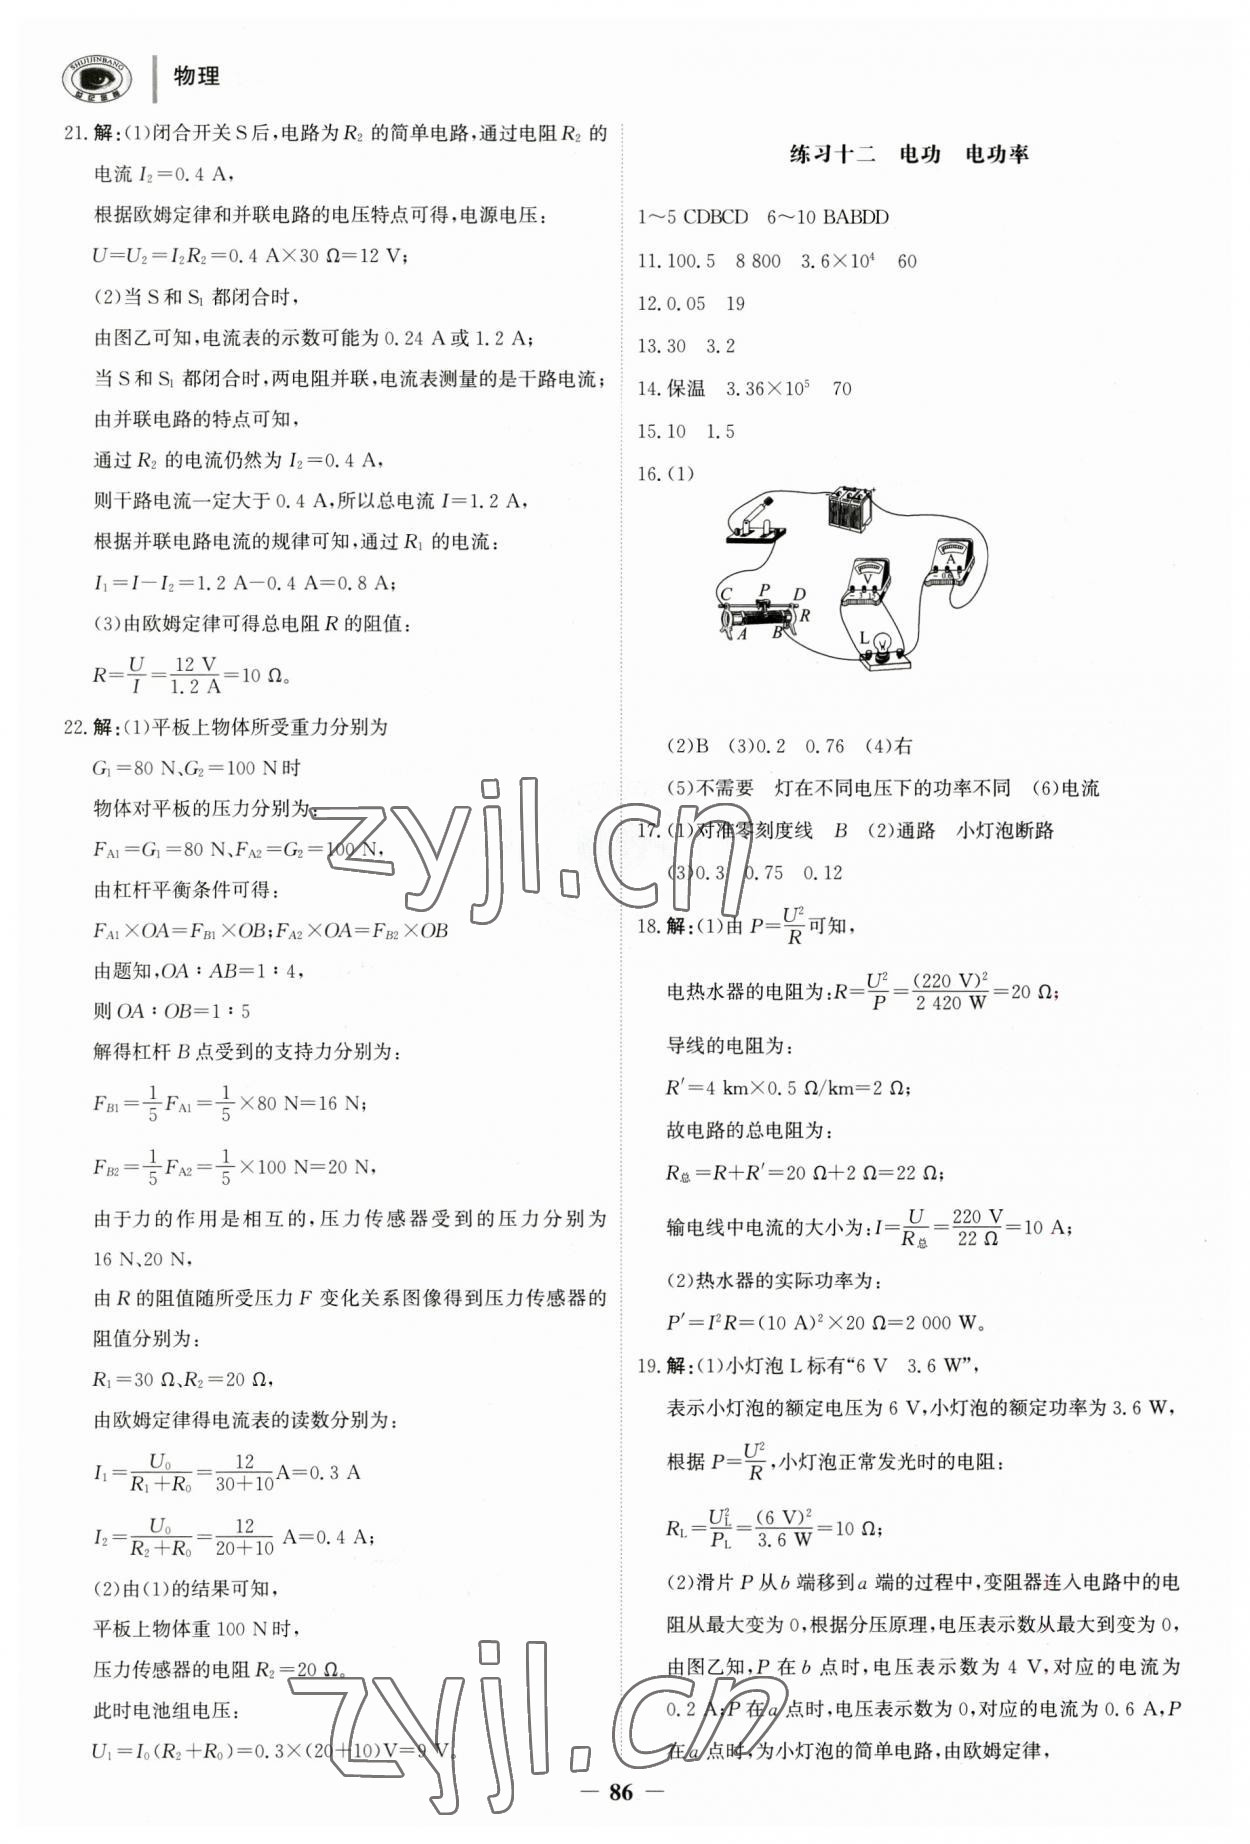 SHIJIJINBANG
世纪金榜
物理
21. 解:(1)闭合开关S后,电路为R₂的简单电路,通过电阻R₂的
电流I₂=0.4 A,
根据欧姆定律和并联电路的电压特点可得,电源电压:
U=U₂=I₂R₂=0.4 A×30 Ω=12 V;
(2)当S和S₁都闭合时,
由图乙可知,电流表的示数可能为0.24 A或1.2 A;
当S和S₁都闭合时,两电阻并联,电流表测量的是干路电流;
由并联电路的特点可知,
通过R₂的电流仍然为I₂=0.4 A,
则干路电流一定大于0.4 A,所以总电流I=1.2 A,
根据并联电路电流的规律可知,通过R₁的电流:
I₁=I-I₂=1.2 A-0.4 A=0.8 A;
(3)由欧姆定律可得总电阻R的阻值:
R=U/I=12 V/1.2 A=10 Ω。
22. 解:(1)平板上物体所受重力分别为
G₁=80 N、G₂=100 N时
物体对平板的压力分别为:
F_A1=G₁=80 N、F_A2=G₂=100 N,
由杠杆平衡条件可得:
F_A1×OA=F_B1×OB;F_A2×OA=F_B2×OB
由题知,OA∶AB=1∶4,
则OA∶OB=1∶5
解得杠杆B点受到的支持力分别为:
F_B1=1/5 F_A1=1/5×80 N=16 N;
F_B2=1/5 F_A2=1/5×100 N=20 N,
由于力的作用是相互的,压力传感器受到的压力分别为
16 N、20 N,
由R的阻值随所受压力F变化关系图像得到压力传感器的
阻值分别为:
R₁=30 Ω、R₂=20 Ω,
由欧姆定律得电流表的读数分别为:
I₁=U₀/(R₁+R₀)=12/(30+10)A=0.3 A
I₂=U₀/(R₂+R₀)=12/(20+10) A=0.4 A;
(2)由(1)的结果可知,
平板上物体重100 N时,
压力传感器的电阻R₂=20 Ω。
此时电池组电压:
U₁=I₀(R₂+R₀)=0.3×(20+10)V=9 V。
练习十二 电功 电功率
1～5 CDBCD 6～10 BABDD
11. 100.5 8 800 3.6×10⁴ 60
12. 0.05 19
13. 30 3.2
14. 保温 3.36×10⁵ 70
15. 10 1.5
16. (1)
V
A
C P D
R
A B
L
(2)B (3)0.2 0.76 (4)右
(5)不需要 灯在不同电压下的功率不同 (6)电流
17. (1)对准零刻度线 B (2)通路 小灯泡断路
(3)0.3 0.75 0.12
18. 解:(1)由P=U²/R可知,
电热水器的电阻为:R=U²/P=(220 V)²/2 420 W=20 Ω;
导线的电阻为:
R′=4 km×0.5 Ω/km=2 Ω;
故电路的总电阻为:
R总=R+R′=20 Ω+2 Ω=22 Ω;
输电线中电流的大小为:I=U/R总=220 V/22 Ω=10 A;
(2)热水器的实际功率为:
P′=I²R=(10 A)²×20 Ω=2 000 W。
19. 解:(1)小灯泡L标有“6 V 3.6 W”,
表示小灯泡的额定电压为6 V,小灯泡的额定功率为3.6 W,
根据P=U²/R,小灯泡正常发光时的电阻:
R_L=U_L²/P_L=(6 V)²/3.6 W=10 Ω;
(2)滑片P从b端移到a端的过程中,变阻器连入电路中的电
阻从最大变为0,根据分压原理,电压表示数从最大到变为0,
由图乙知,P在b点时,电压表示数为4 V,对应的电流为
0.2 A;P在a点时,电压表示数为0,对应的电流为0.6 A,P
在a点时,为小灯泡的简单电路,由欧姆定律,
— 86 —
zyjl.cn
zyjl.cn